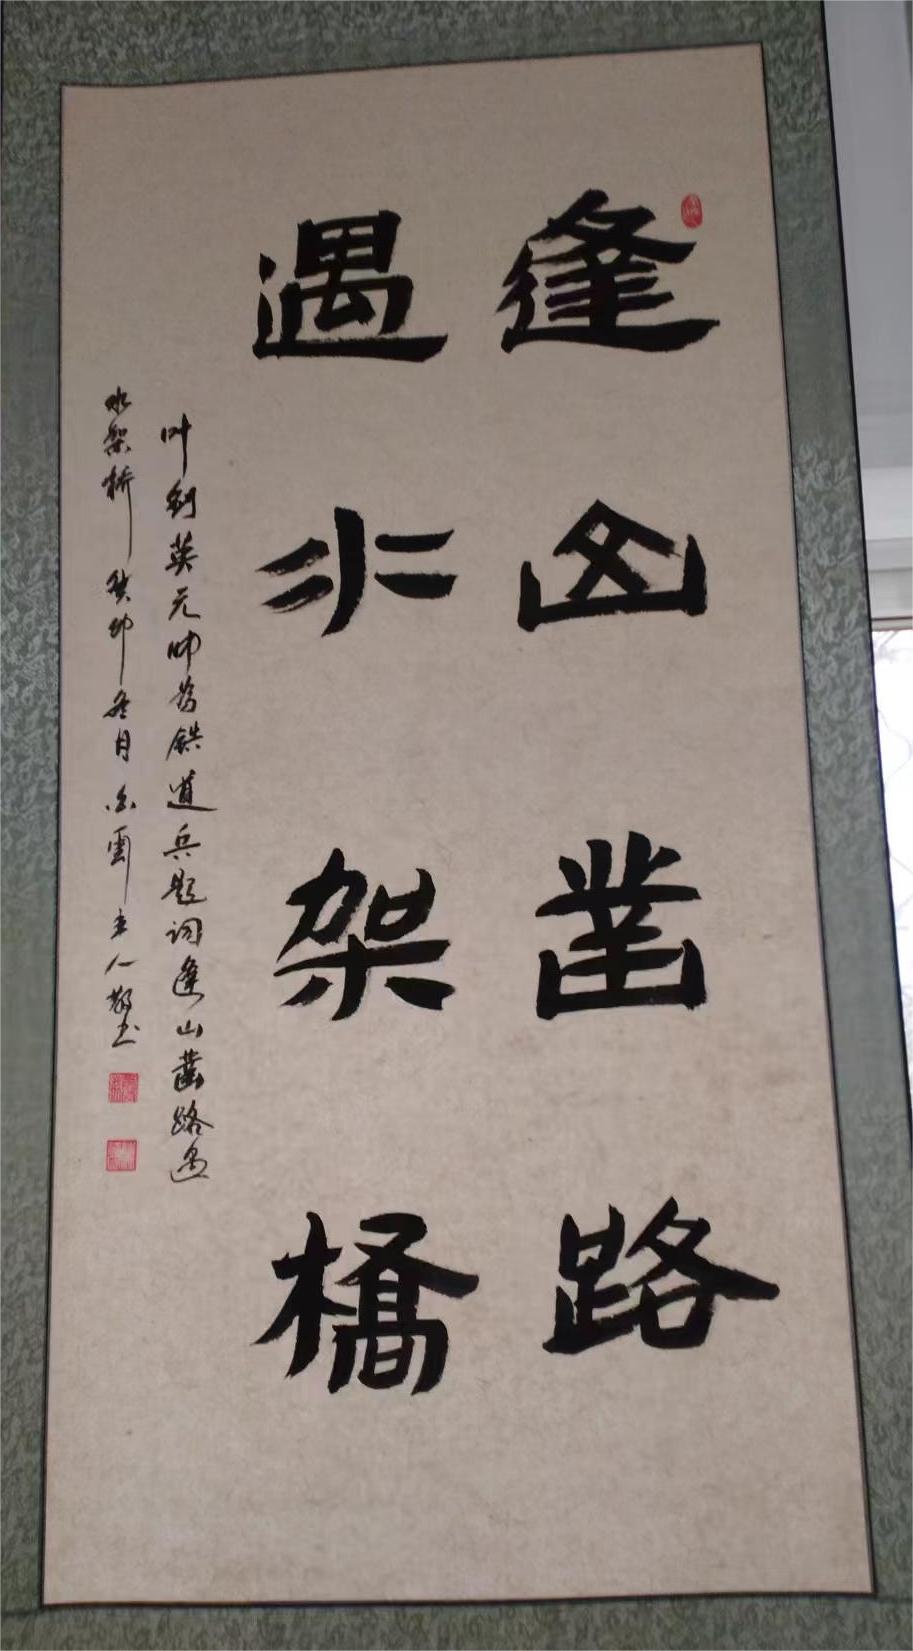 逢山凿路
遇水架橋
叶剑英元帅为鉄道兵题词逢山凿路遇
水架桥癸卯冬月白雲主人敬书